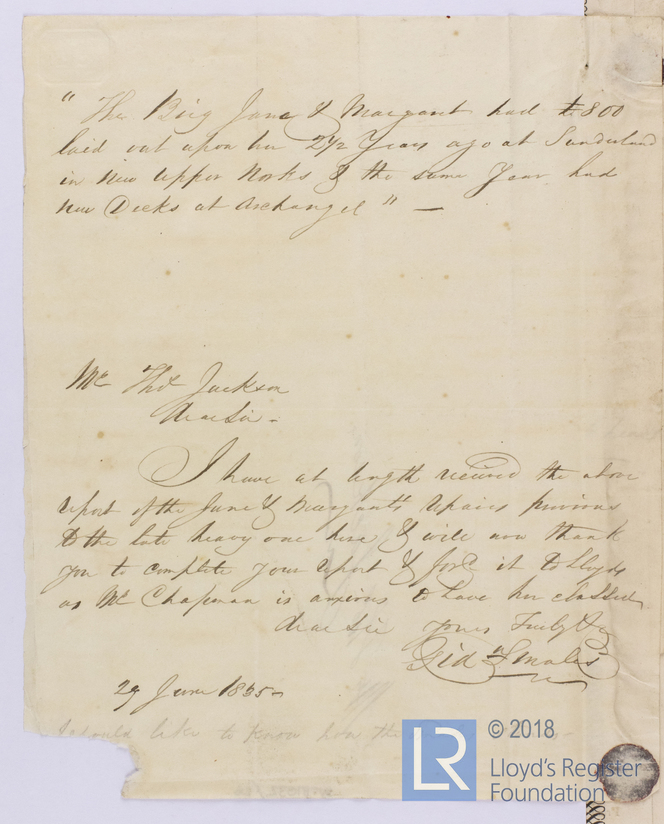 " The Brig Jane & Margaret had £800
laid out upon her 2 1/2 Years ago at Sunderland
in new Upper Works & the same Year had
new Decks at Archangel " —
Mr Thos Jackson
Dear Sir -
I have at length received the above
report of the Jane & Margarets repairs previous
to the late heavy one here & will now thank
you to complete your report & ford it to Lloyds
as Mr Chapman is anxious to have her classed
Dear Sir yours Truly &c
Gidn Smales
29 June 1835
I should like to know how the
LR
© 2018
Lloyd's Register
Foundation